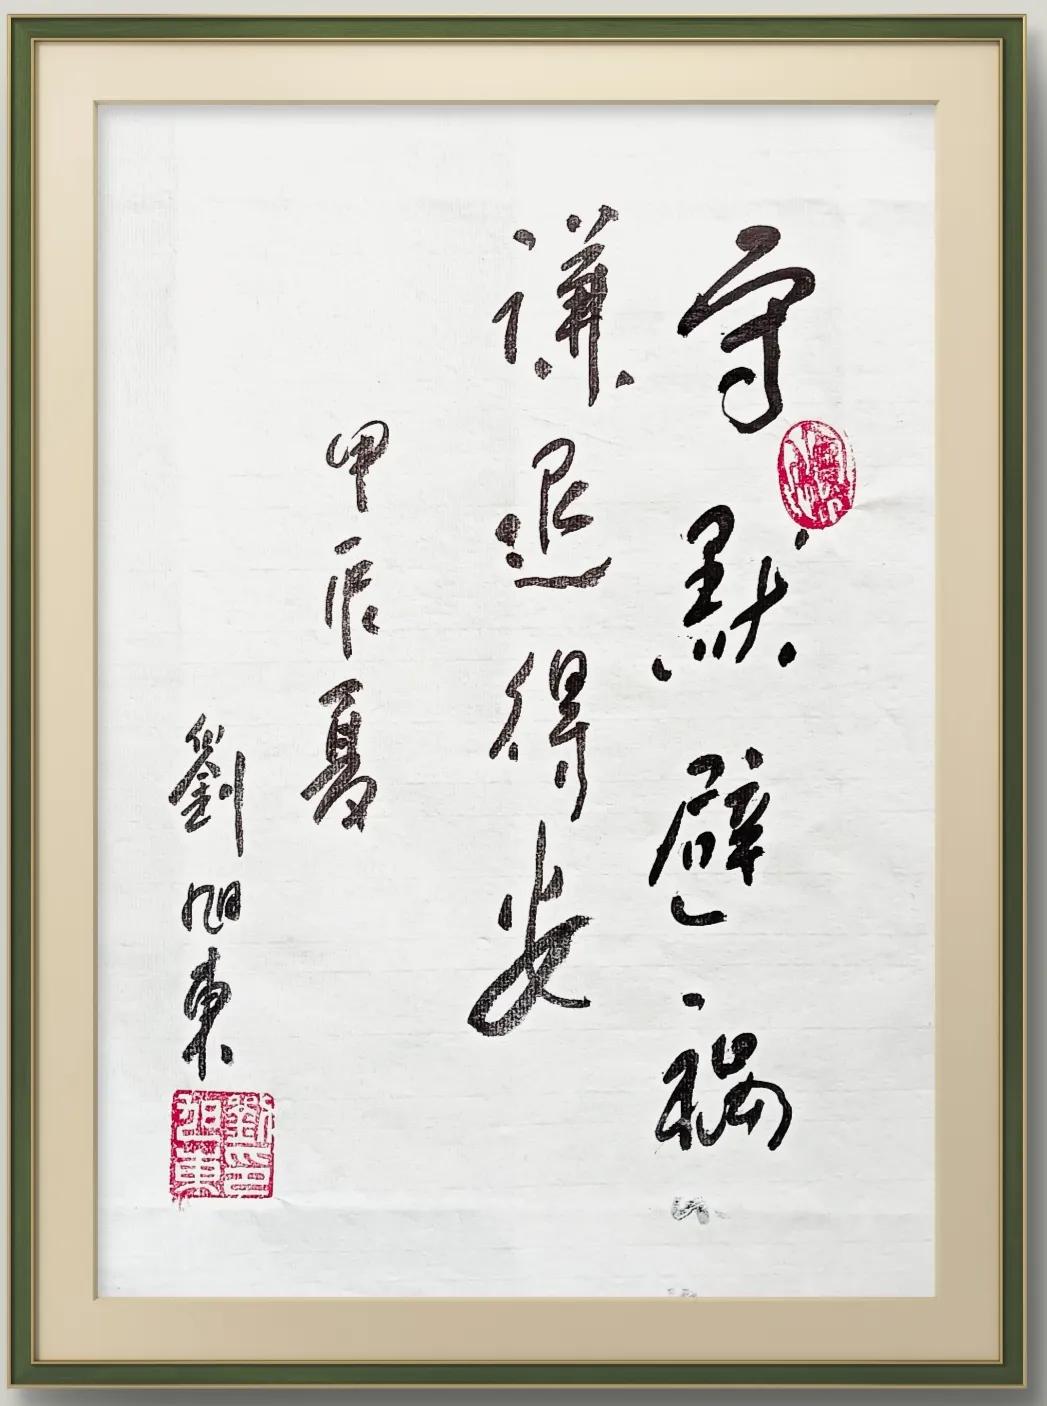 守默避禍
謙退得安
甲辰夏
劉旭東
劉印旭東